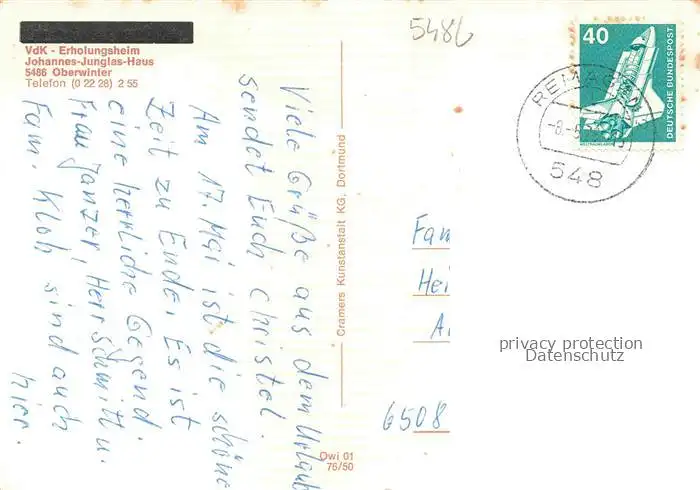 VdK - Erholungsheim
Johannes-Junglas-Haus
5486 Oberwinter
Telefon (0 22 28) 2 55
Viele Grüße aus dem Urlaub
sendet Euch Christel.
Am 17. Mai ist die schöne
Zeit zu Ende. Es ist
eine herrliche Gegend.
Frau Janzer, Herr Schmitt u.
Fam. Klob sind auch
hier.
Cramers Kunstanstalt KG, Dortmund
Owi 01
76/50
548
40
DEUTSCHE BUNDESPOST
WELTRAUMLABOR
REMAGEN
548
Fam
Hei
6508
privacy protection
Datenschutz